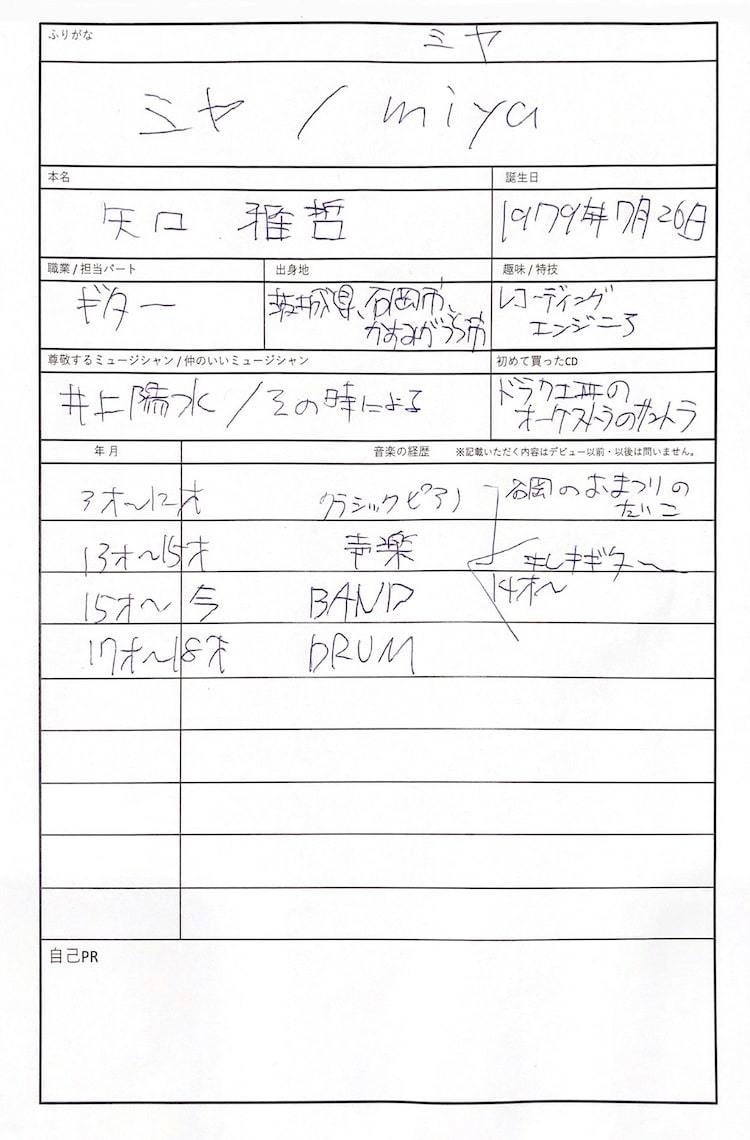 ふりがな
ミヤ
ミヤ / miya
本名
誕生日
矢口 雅哲
1979年7月26日
職業 / 担当パート
出身地
趣味 / 特技
ギター
茨城県、石岡市、
かすみがうら市
レコーディング
エンジニア
尊敬するミュージシャン / 仲のいいミュージシャン
初めて買ったCD
井上陽水 / その時による
ドラクエIIIの
オーケストラのサントラ
年月
音楽の経歴 ※記載いただく内容はデビュー以前・以後は問いません。
3才〜12才 クラシックピアノ
石岡のおまつりの
たいこ
13才〜15才 声楽
エレキギター
14才〜
15才〜今 BAND
17才〜18才 DRUM
自己PR